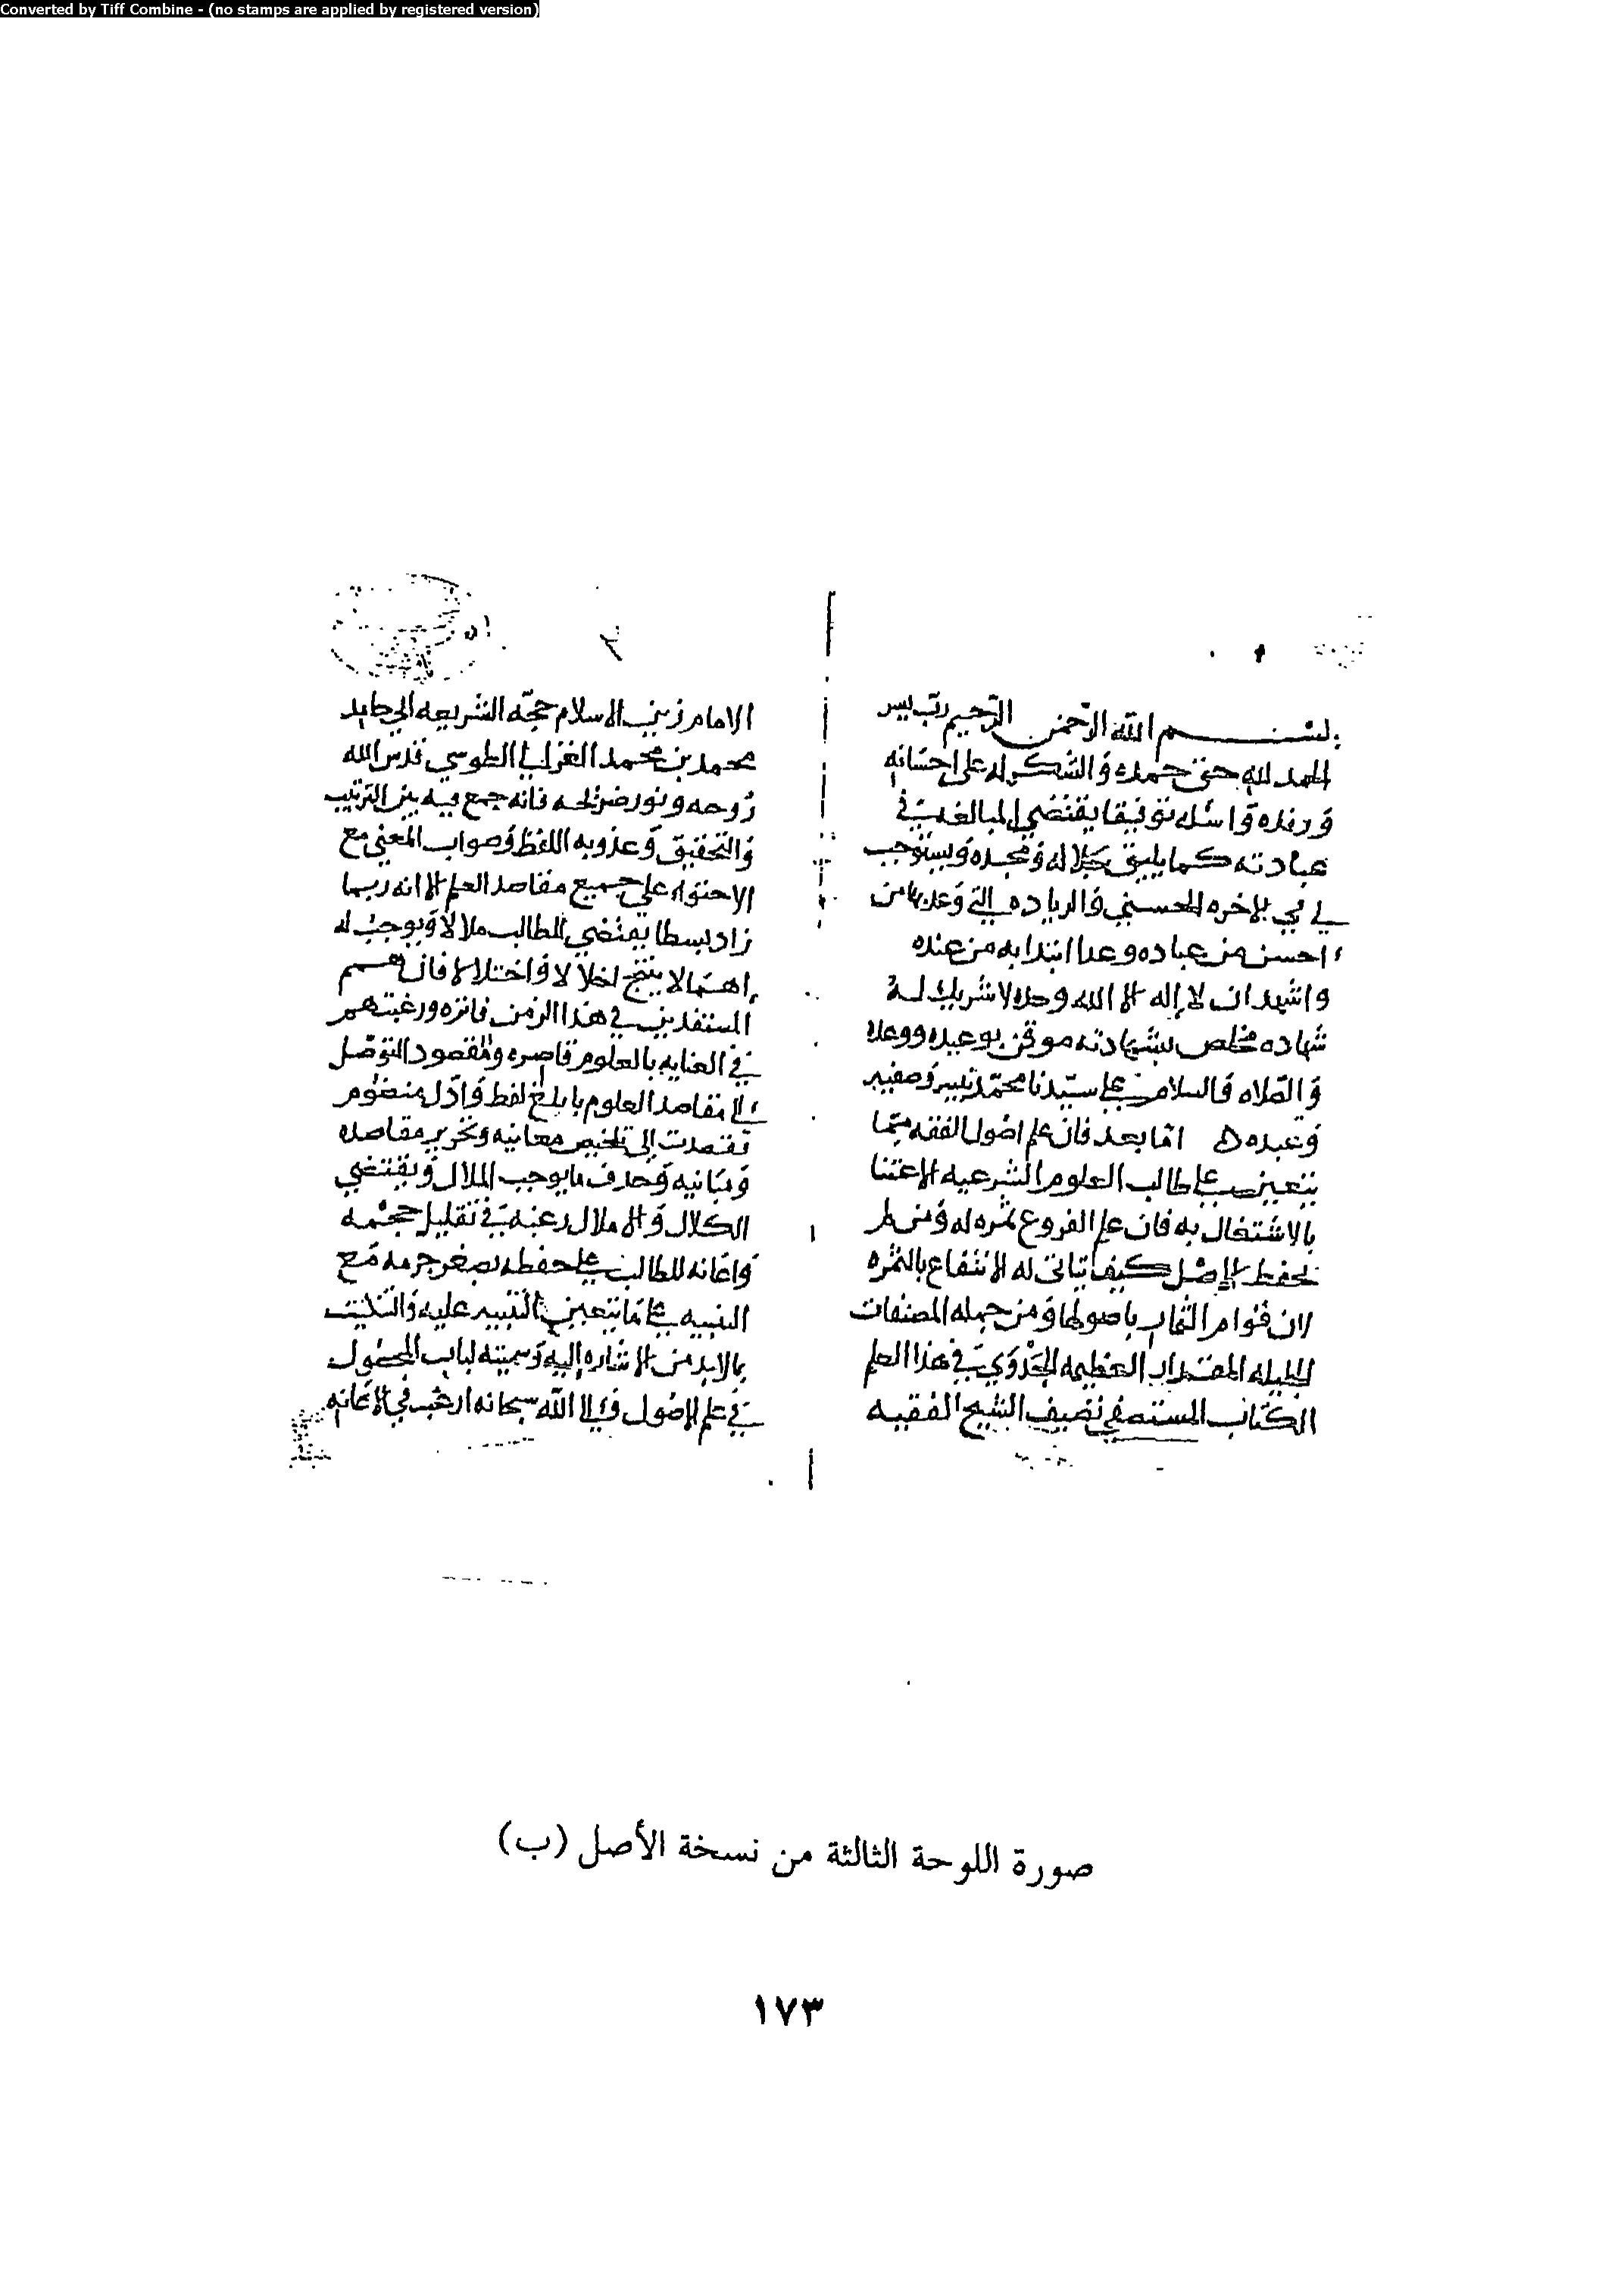 Converted by Tiff Combine - (no stamps are applied by registered version)
بسم الله الرحمن الرحيم رب يسر
الحمد لله حق حمده والشكر له على احسانه
ورفده واسله توفيقا يقتضي المبالغه في
عبادته كما يليق بجلاله ومجده ويستوجب
لي في الاخره الحسني والزياده التي وعد بها من
احسن من عباده وعدا ابتدا به من عنده
واشهد ان لا إله الا الله وحده لا شريك له
شهاده مخلص بشهادته موقن بوعيده ووعده
والصلاه والسلام على سيدنا محمد نبيه وصفيه
وعبده ه اما بعد فان علم اصول الفقه مما
يتعين على طالب العلوم الشرعيه الاعتنا
بالاشتغال به فان علم الفروع ثمره له ومن لم
يحفظ الاصل كيف يتاتى له الانتفاع بالثمره
لان قوام الثمار باصولها ومن جمله المصنفات
الجليله المقدار العظيمه الجدوي في هذا العلم
الكتاب المستصفي تصنيف الشيخ الفقيه
الامام زين الاسلام حجه الشريعه ابي حامد
محمد بن محمد الغزالي الطوسي قدس الله
روحه ونور ضريحه فانه جمع فيه بين الترتيب
والتحقيق وعذوبه اللفظ وصواب المعني مع
الاحتواء على جميع مقاصد العلم الا انه ربما
زاد بسطا يقتضي للطالب ملالا ويوجب له
اهمالا ينتج اخلالا واختلالا فان همم
المستفدين في هذا الزمن فاتره ورغبتهم
في العنايه بالعلوم قاصره والمقصود التوصل
الى مقاصد العلوم بابلغ لفظ وادل منظوم
فقصدت إلى تلخيص معانيه وتحرير مقاصده
ومبانيه وحذف ما يوجب الملال ويقتضي
الكلال والاملال رغبه في تقليل حجمه
واعانه للطالب على حفظه بصغر جرمه مع
التنبيه على ما يتعين التنبيه عليه والتنكيت
بما لابد من الاشاره إليه وسميته لباب المحصول
في علم الاصول والى الله سبحانه ارغب في الاعانه
صورة اللوحة الثالثة من نسخة الأصل (ب)
١٧٣